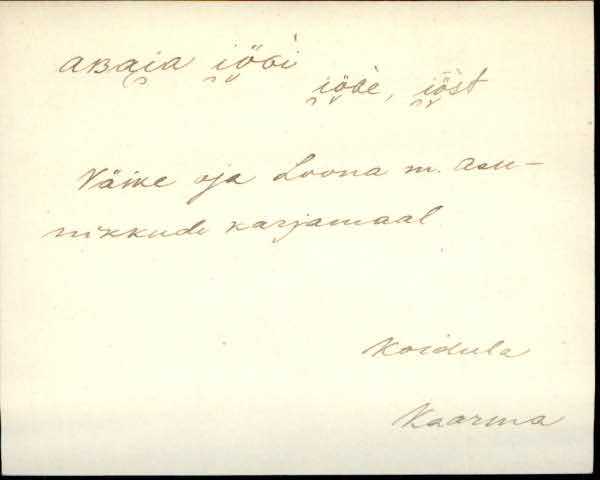 ABAi̯A i̯ö̬Bì
i̯ö̬Bè, i̯ö̬st
Väike oja Loona m. asu-
nikkude karjamaal
Koidula
Kaarma